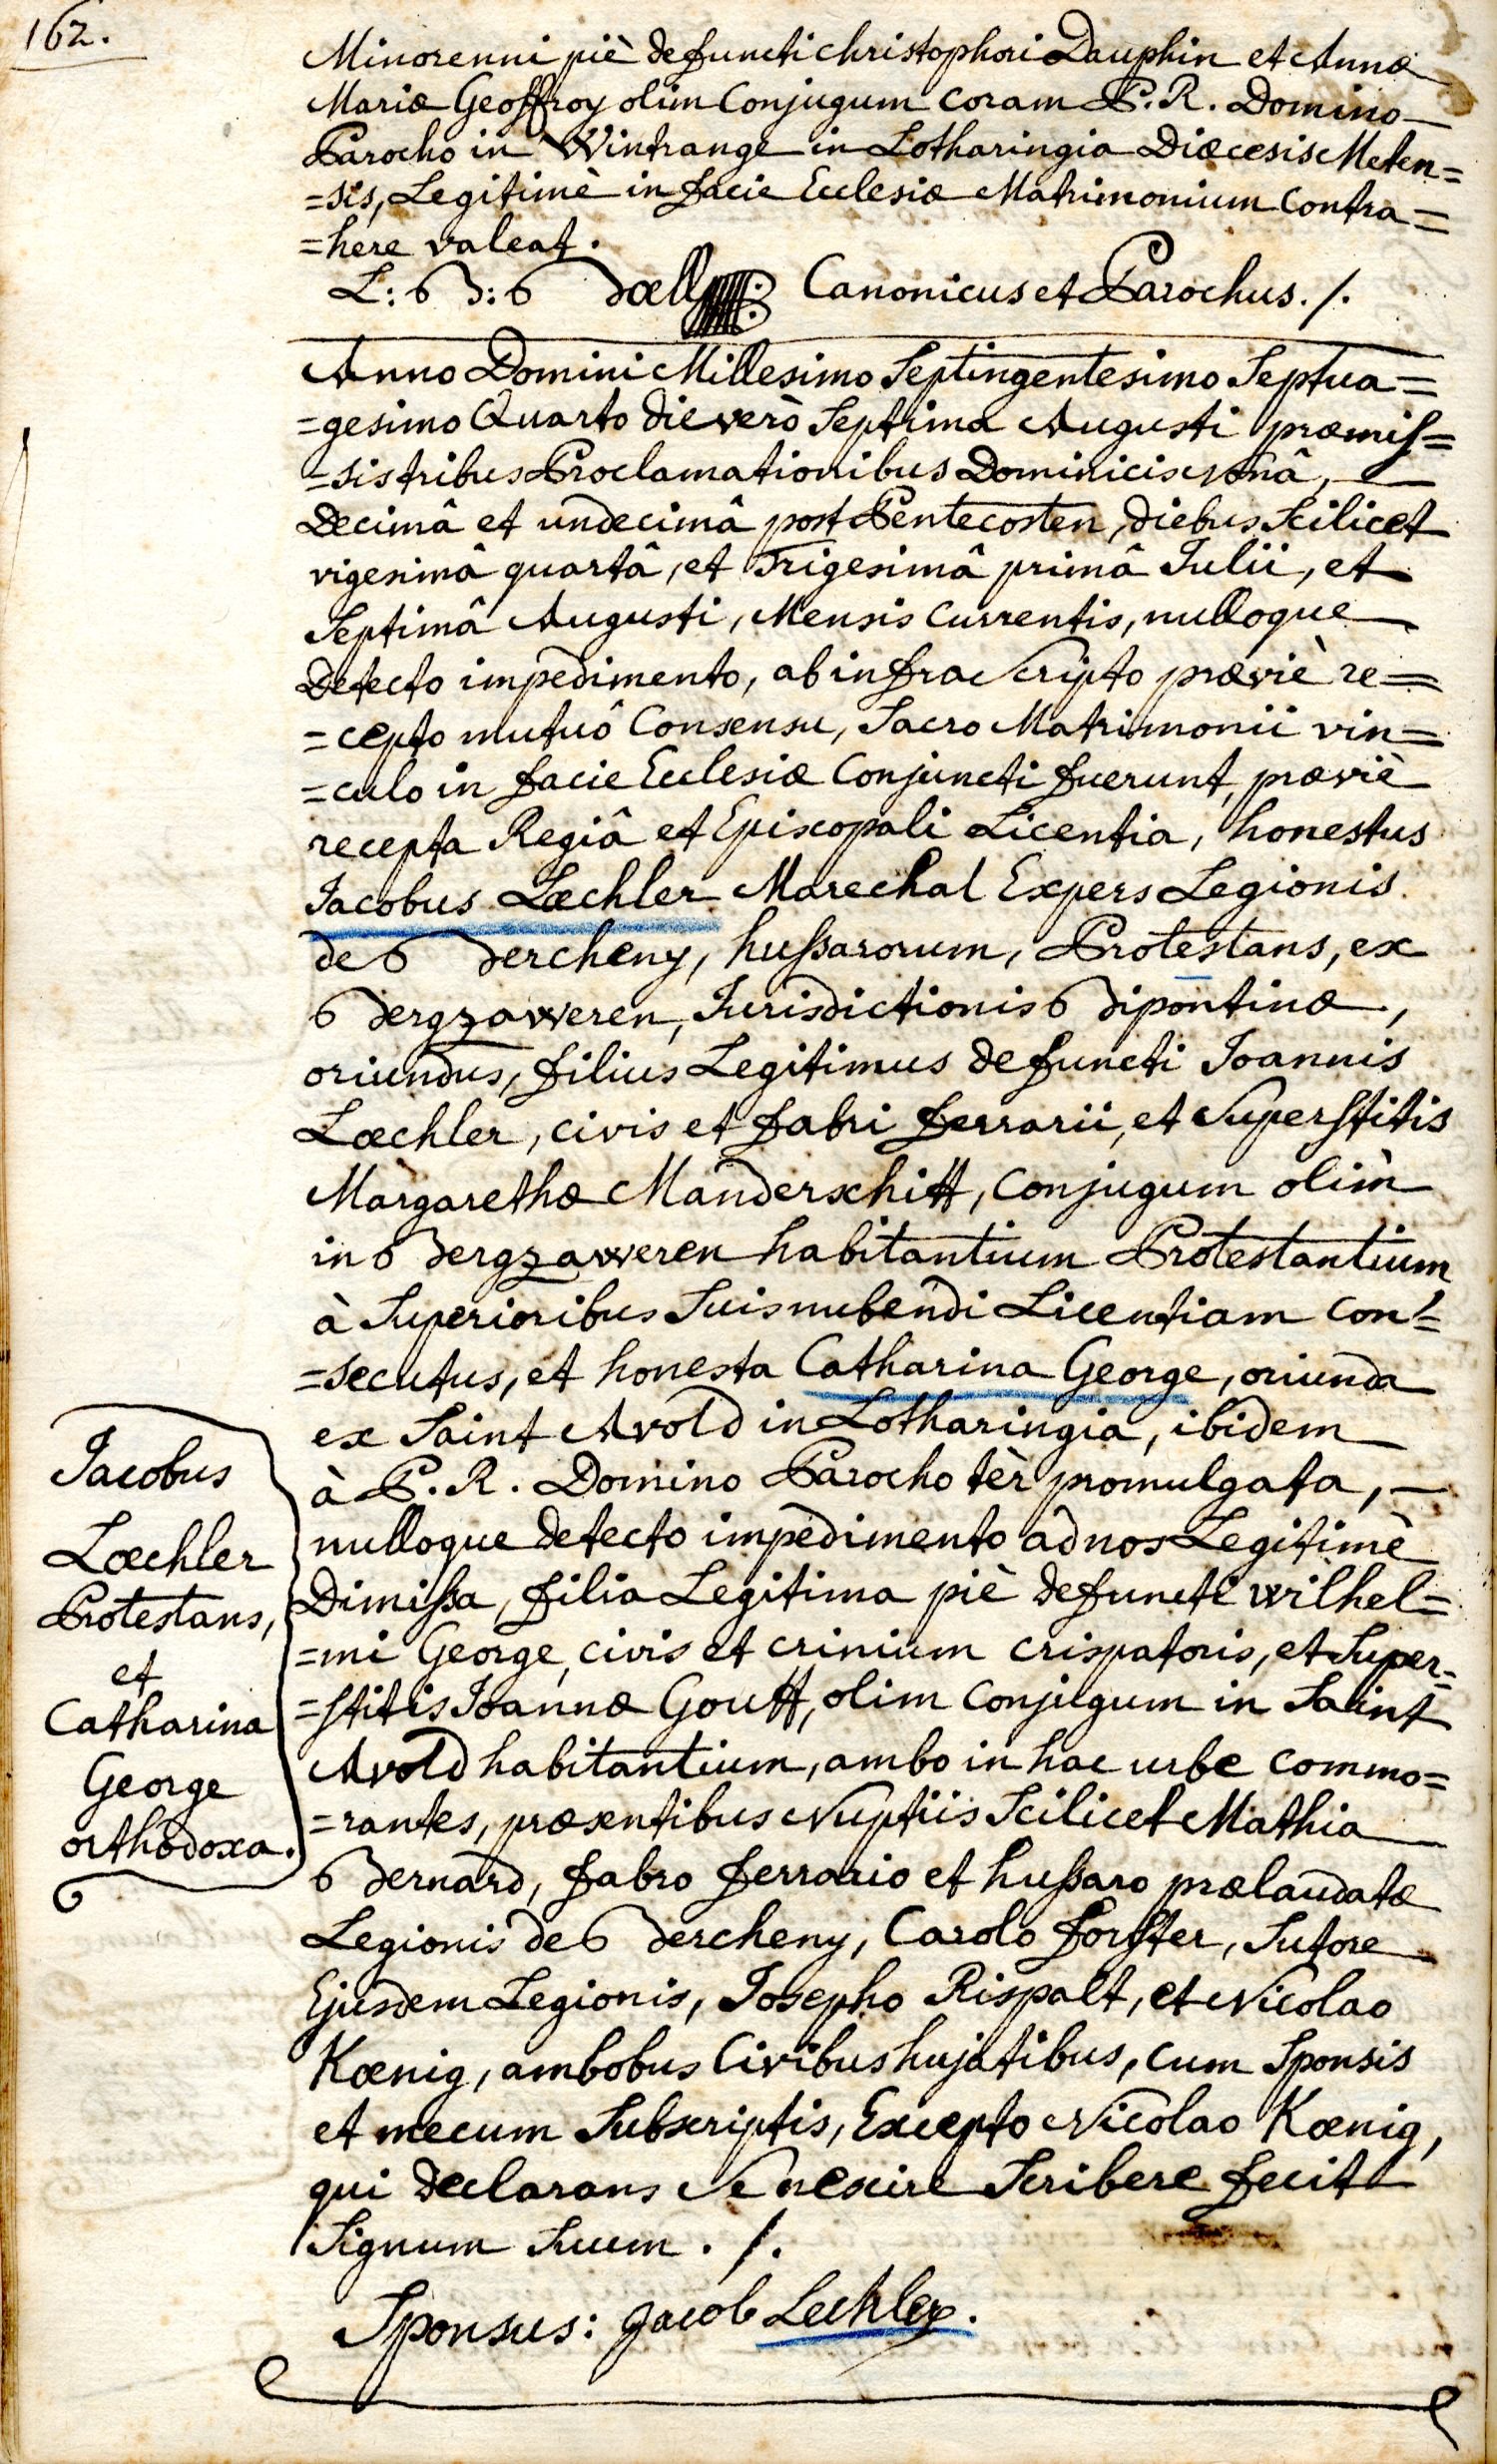 162.
Minorenni piè defuncti christophori Dauphin et Annæ
Mariæ Geoffroy olim Conjugum coram P. R. Domino
Parocho in Wintrange in Lotharingia Diœcesis Meten=
=sis, Legitimè in facie Ecclesiæ Matrimonium Contra=
=here valeat.
L: B: Bœll Canonicus et Parochus. /.
Anno Domini Millesimo Septingentesimo Septua=
=gesimo Quarto die verò Septima Augusti præmis=
=sis tribus Proclamationibus Dominicis Nonâ,
Decimâ et undecimâ post Pentecosten, diebus Scilicet
vigesimâ quartâ, et Trigesimâ primâ Julii, et
Septimâ Augusti, Mensis Currentis, nulloque
Detecto impedimento, ab infra Scripto præviè re=
=cepto mutuô Consensu, Sacro Matrimonii vin=
=culo in facie Ecclesiæ Conjuncti fuerunt, præviè
recepta Regiâ et Episcopali Licentia, honestus
Jacobus Lœchler Marechal Expers Legionis
de Bercheny, hussarorum, Protestans, ex
Bergzaweren, Jurisdictionis Bipontinæ,
oriundus, filius Legitimus defuncti Joannis
Lœchler, civis et fabri ferrarii, et Superstitis
Margarethæ Manderschitt, Conjugum olim
in Bergzaweren habitantium Protestantium
à Superioribus Suis nubendi Licentiam con=
=secutus, et honesta Catharina George, oriunda
ex Saint Avold in Lotharingia, ibidem
à P. R. Domino Parocho tèr promulgata,
nulloque detecto impedimento ad nos Legitimè
Dimissa, filia Legitima piè defuncti wilhel=
=mi George, civis et crinium crispatoris, et Super=
=stitis Joannæ Goutt, olim Conjugum in Saint
Avold habitantium, ambo in hac urbe commo=
=rantes, præsentibus Nuptiis Scilicet Mathia
Bernard, fabro ferrario et hussaro prælaudatæ
Legionis de Bercheny, Carolo forster, Sutore
Ejusdem Legionis, Josepho Rispalt, et Nicolao
Kœnig, ambobus Civibus hujatibus, cum Sponsis
et mecum Subscriptis, Excepto Nicolao Kœnig,
qui declarans Se nescire Scribere fecit
Signum Suum. /.
Sponsus: Jacob Lechler.
Jacobus
Lœchler
Protestans,
et
Catharina
George
orthodoxa.